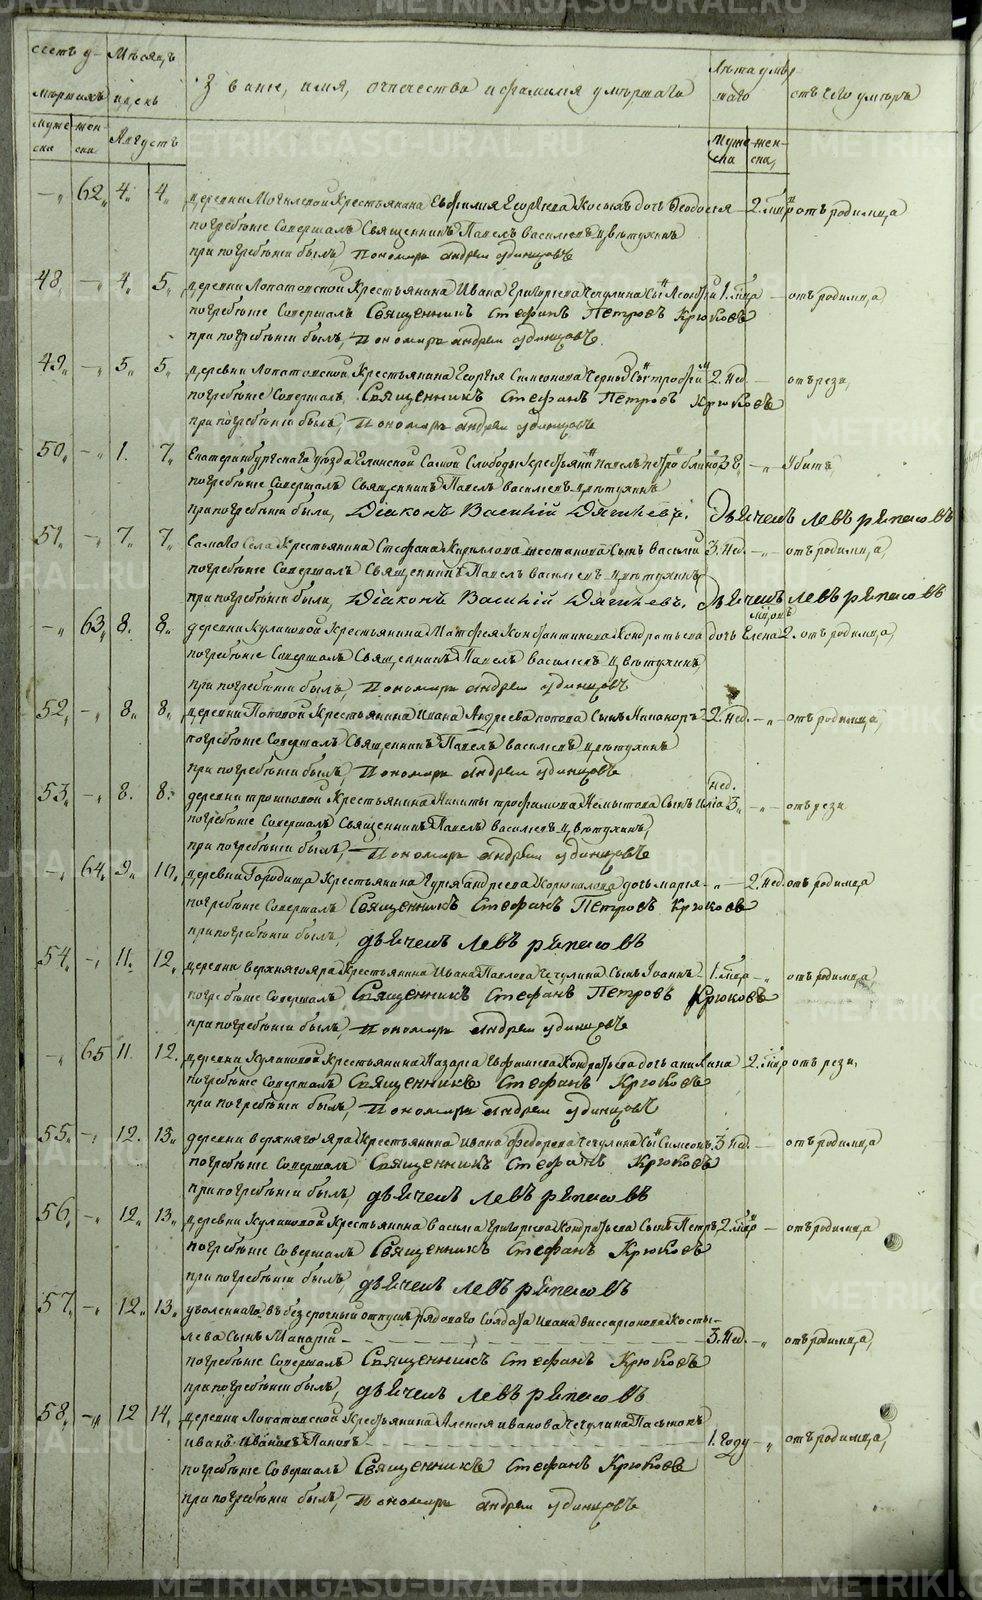 счетъ у-
мершихъ
Мѣсяцъ
и день
Званіе, имя, отчество и фамилія умершаго
Лѣта умер
шаго
отъ чего умеръ
муже
ска
жен
ска
Августъ
муже
ска
жен-
ска,
62. 4. 4. деревни Могилевой Крестьянина Евфимія Георгіева Косыхъ дочь Феодосія 2. мцо отъ родимца
погребеніе Совершалъ Священникъ Павелъ Василіевъ Цвѣтухинъ
при погребеніи былъ, Пономарь Андрей Удинцовъ
48. 4. 5. деревни Лопатовской Крестьянина Ивана Григорьева Чечулина Сынъ 1. мцо отъ родимца
погребеніе Совершалъ Священникъ Стефанъ Петровъ Крюковъ
при погребеніи былъ, Пономарь Андрей Удинцовъ.
49. 5. 5. деревни Лопатовской Крестьянина Георгія Симеонова Сынъ Трофимъ 2. Нед. отъ рези,
погребеніе Совершалъ, Священникъ Стефанъ Петровъ Крюковъ
при погребеніи былъ, Пономарь Андрей Удинцовъ
50. 1. 7. Екатеринбургскаго уѣзда Слободы Крестьянинъ Павелъ Петровъ 38. Убитъ,
погребеніе Совершалъ Священникъ Павелъ Василіевъ Цвѣтухинъ
при погребеніи были, Діаконъ Василій Дягилевъ. Дьячекъ Левъ Рѣпасовъ
51. 7. 7. Самаго Села Крестьянина Стефана Кириллова Шестакова Сынъ Василій 3. Нед. отъ родимца,
погребеніе Совершалъ Священникъ Павелъ Василіевъ Цвѣтухинъ
при погребеніи были, Діаконъ Василій Дягилевъ. Дьячекъ Левъ Рѣпасовъ
63. 8. 8. деревни Куликовой Крестьянина Матфея Константинова Кондратьева дочь Елена 2. отъ родимца,
погребеніе Совершалъ Священникъ Павелъ Василіевъ Цвѣтухинъ,
при погребеніи былъ, Пономарь Андрей Удинцовъ
52. 8. 8. деревни Поповой Крестьянина Ивана Андреева Попова Сынъ Никаноръ 2. Нед. отъ родимца,
погребеніе Совершалъ Священникъ Павелъ Василіевъ Цвѣтухинъ
при погребеніи былъ, Пономарь Андрей Удинцовъ
53. 8. 8. деревни Трошковой Крестьянина Никиты Трофимова Немытова Сынъ Илія 3. Нед. отъ рези
погребеніе Совершалъ Священникъ Павелъ Василіевъ Цвѣтухинъ,
при погребеніи былъ, Пономарь Андрей Удинцовъ
64. 9. 10. деревни Городища Крестьянина Гурія Андреева дочь Марья 2. Нед. отъ родимца
погребеніе Совершалъ Священникъ Стефанъ Петровъ Крюковъ
при погребеніи былъ, дьячекъ Левъ Рѣпасовъ
54. 11. 12. деревни Верхняго Яра Крестьянина Ивана Павлова Чечулина Сынъ Іоаннъ 1. мцо отъ родимца
погребеніе Совершалъ Священникъ Стефанъ Петровъ Крюковъ
при погребеніи былъ, Пономарь Андрей Удинцовъ
65 11. 12. деревни Куликовой Крестьянина Назарія Ефимиева Кондратьева дочь Акилина 2. мцо отъ рези,
погребеніе Совершалъ Священникъ Стефанъ Крюковъ
при погребеніи былъ, Пономарь Андрей Удинцовъ
55. 12. 13. деревни Верхняго Яра Крестьянина Ивана Федорова Чечулина Сынъ Симеонъ 3 Нед. отъ родимца
погребеніе Совершалъ Священникъ Стефанъ Крюковъ
при погребеніи былъ, дьячекъ Левъ Рѣпасовъ
56. 12. 13. деревни Куликовой Крестьянина Василія Григорьева Кондратьева Сынъ Петръ, 2. мцо отъ родимца
погребеніе Совершалъ Священникъ Стефанъ Крюковъ
при погребеніи былъ, дьячекъ Левъ Рѣпасовъ
57. 12. 13. уволеннаго въ безсрочный отпускъ рядоваго Солдата Ивана Виссаріонова Косты-
лева Сынъ Макарій 3. Нед. отъ родимца,
погребеніе Совершалъ Священникъ Стефанъ Крюковъ
при погребеніи былъ, дьячекъ Левъ Рѣпасовъ
58. 12 14. деревни Лопатовской Крестьянина Алексія Иванова Чечулина Пасынокъ
Иванъ Ивановъ Пановъ 1. году отъ родимца,
погребеніе Совершалъ Священникъ Стефанъ Крюковъ
при погребеніи былъ, Пономарь Андрей Удинцовъ
METRIKI.GASO-URAL.RU